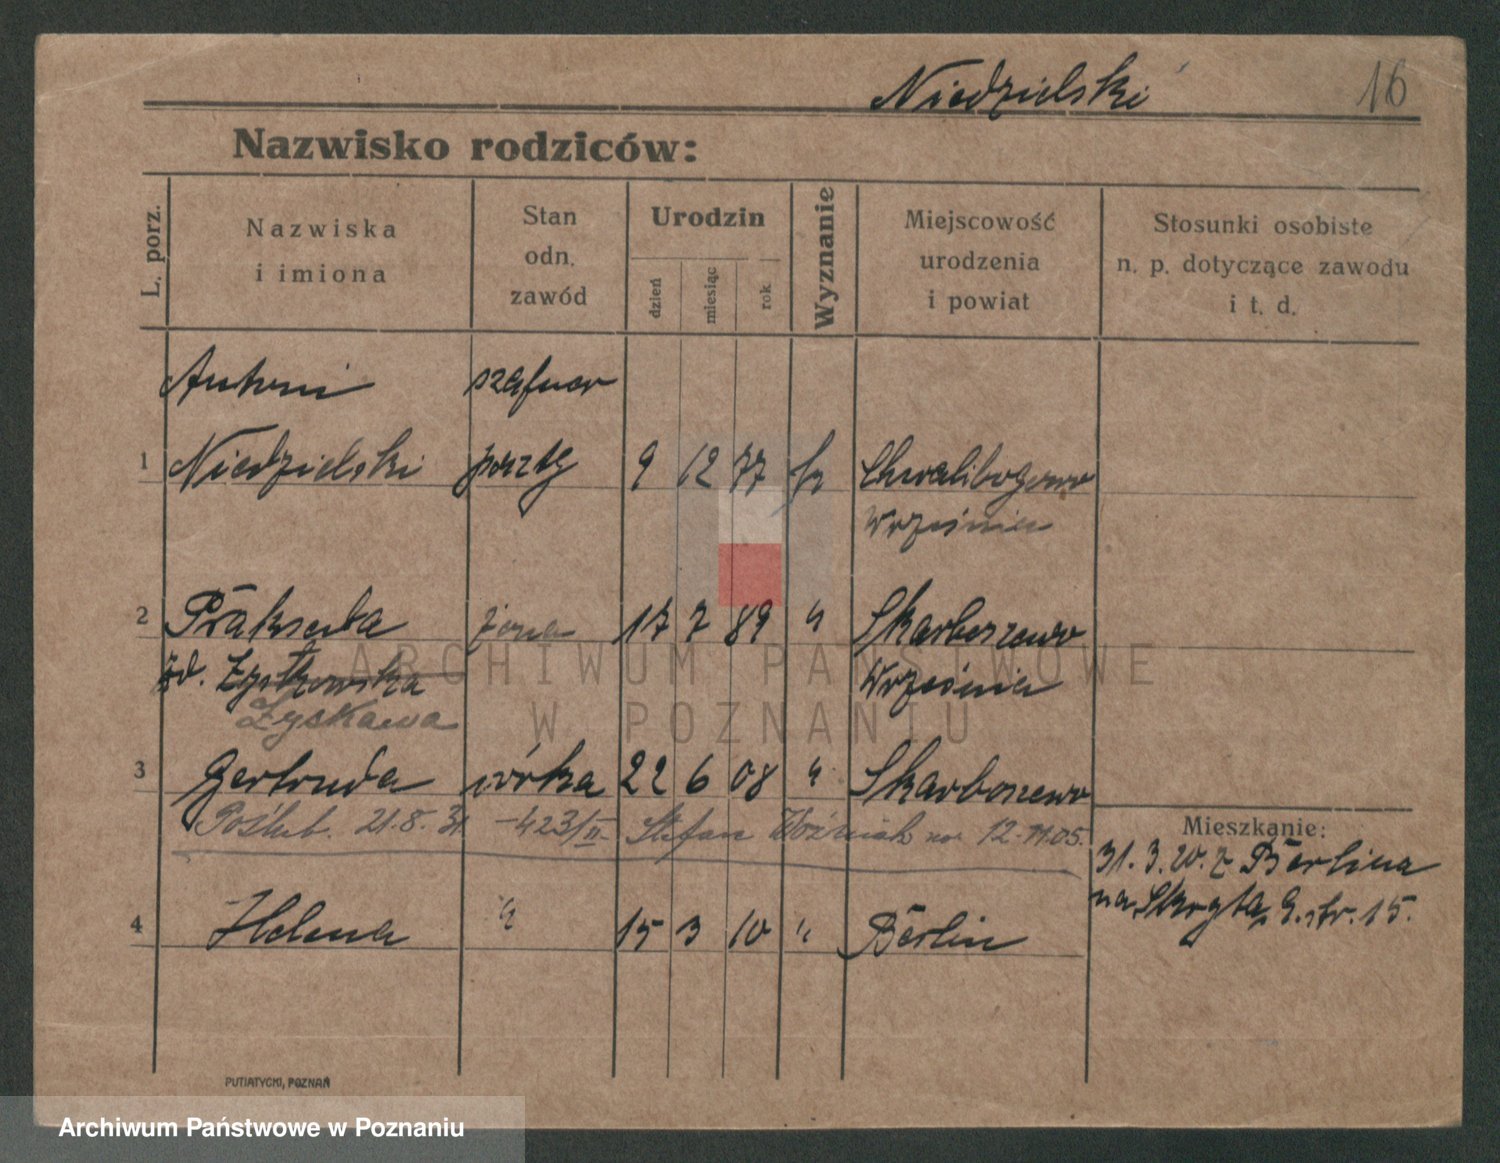 Niedzielski 16
Nazwisko rodziców:
L. porz.
Nazwiska
i imiona
Stan
odn.
zawód
Urodzin
dzień
miesiąc
rok
Wyznanie
Miejscowość
urodzenia
i powiat
Stosunki osobiste
n. p. dotyczące zawodu
i t. d.
Antoni
1 Niedzielski 9 12 77 Chwalibogowo
Września
2 Prakseda żona 17 7 89 " Skarboszewo
żd. Zyskowska Września
Zyskawa
3 Gertruda córka 22 6 08 " Skarboszewo
Poślub. 21.8.31 - 423/II Stefan Woźniak 12.11.05.
Mieszkanie:
31. 3. 20. z Berlina
na Skrytą 15.
4 Helena " 15 3 10 " Berlin
PUTIATYCKI, POZNAŃ
ARCHIWUM PAŃSTWOWE
W POZNANIU
Archiwum Państwowe w Poznaniu